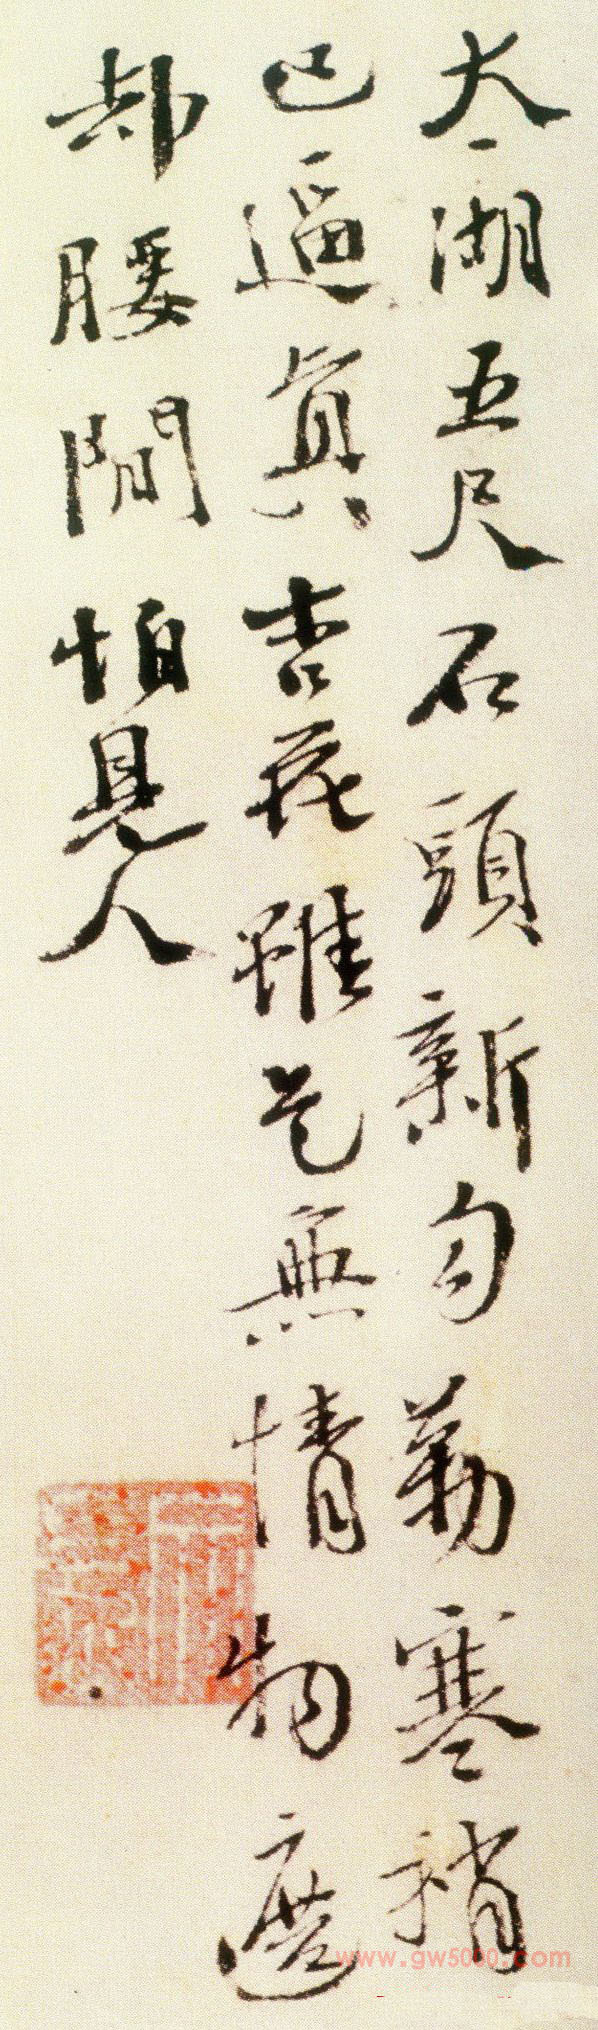 太湖五尺石頭新勾勒寒梢
已逼真雖是無情物遮
却腰間怕見人
www.gw5000.com